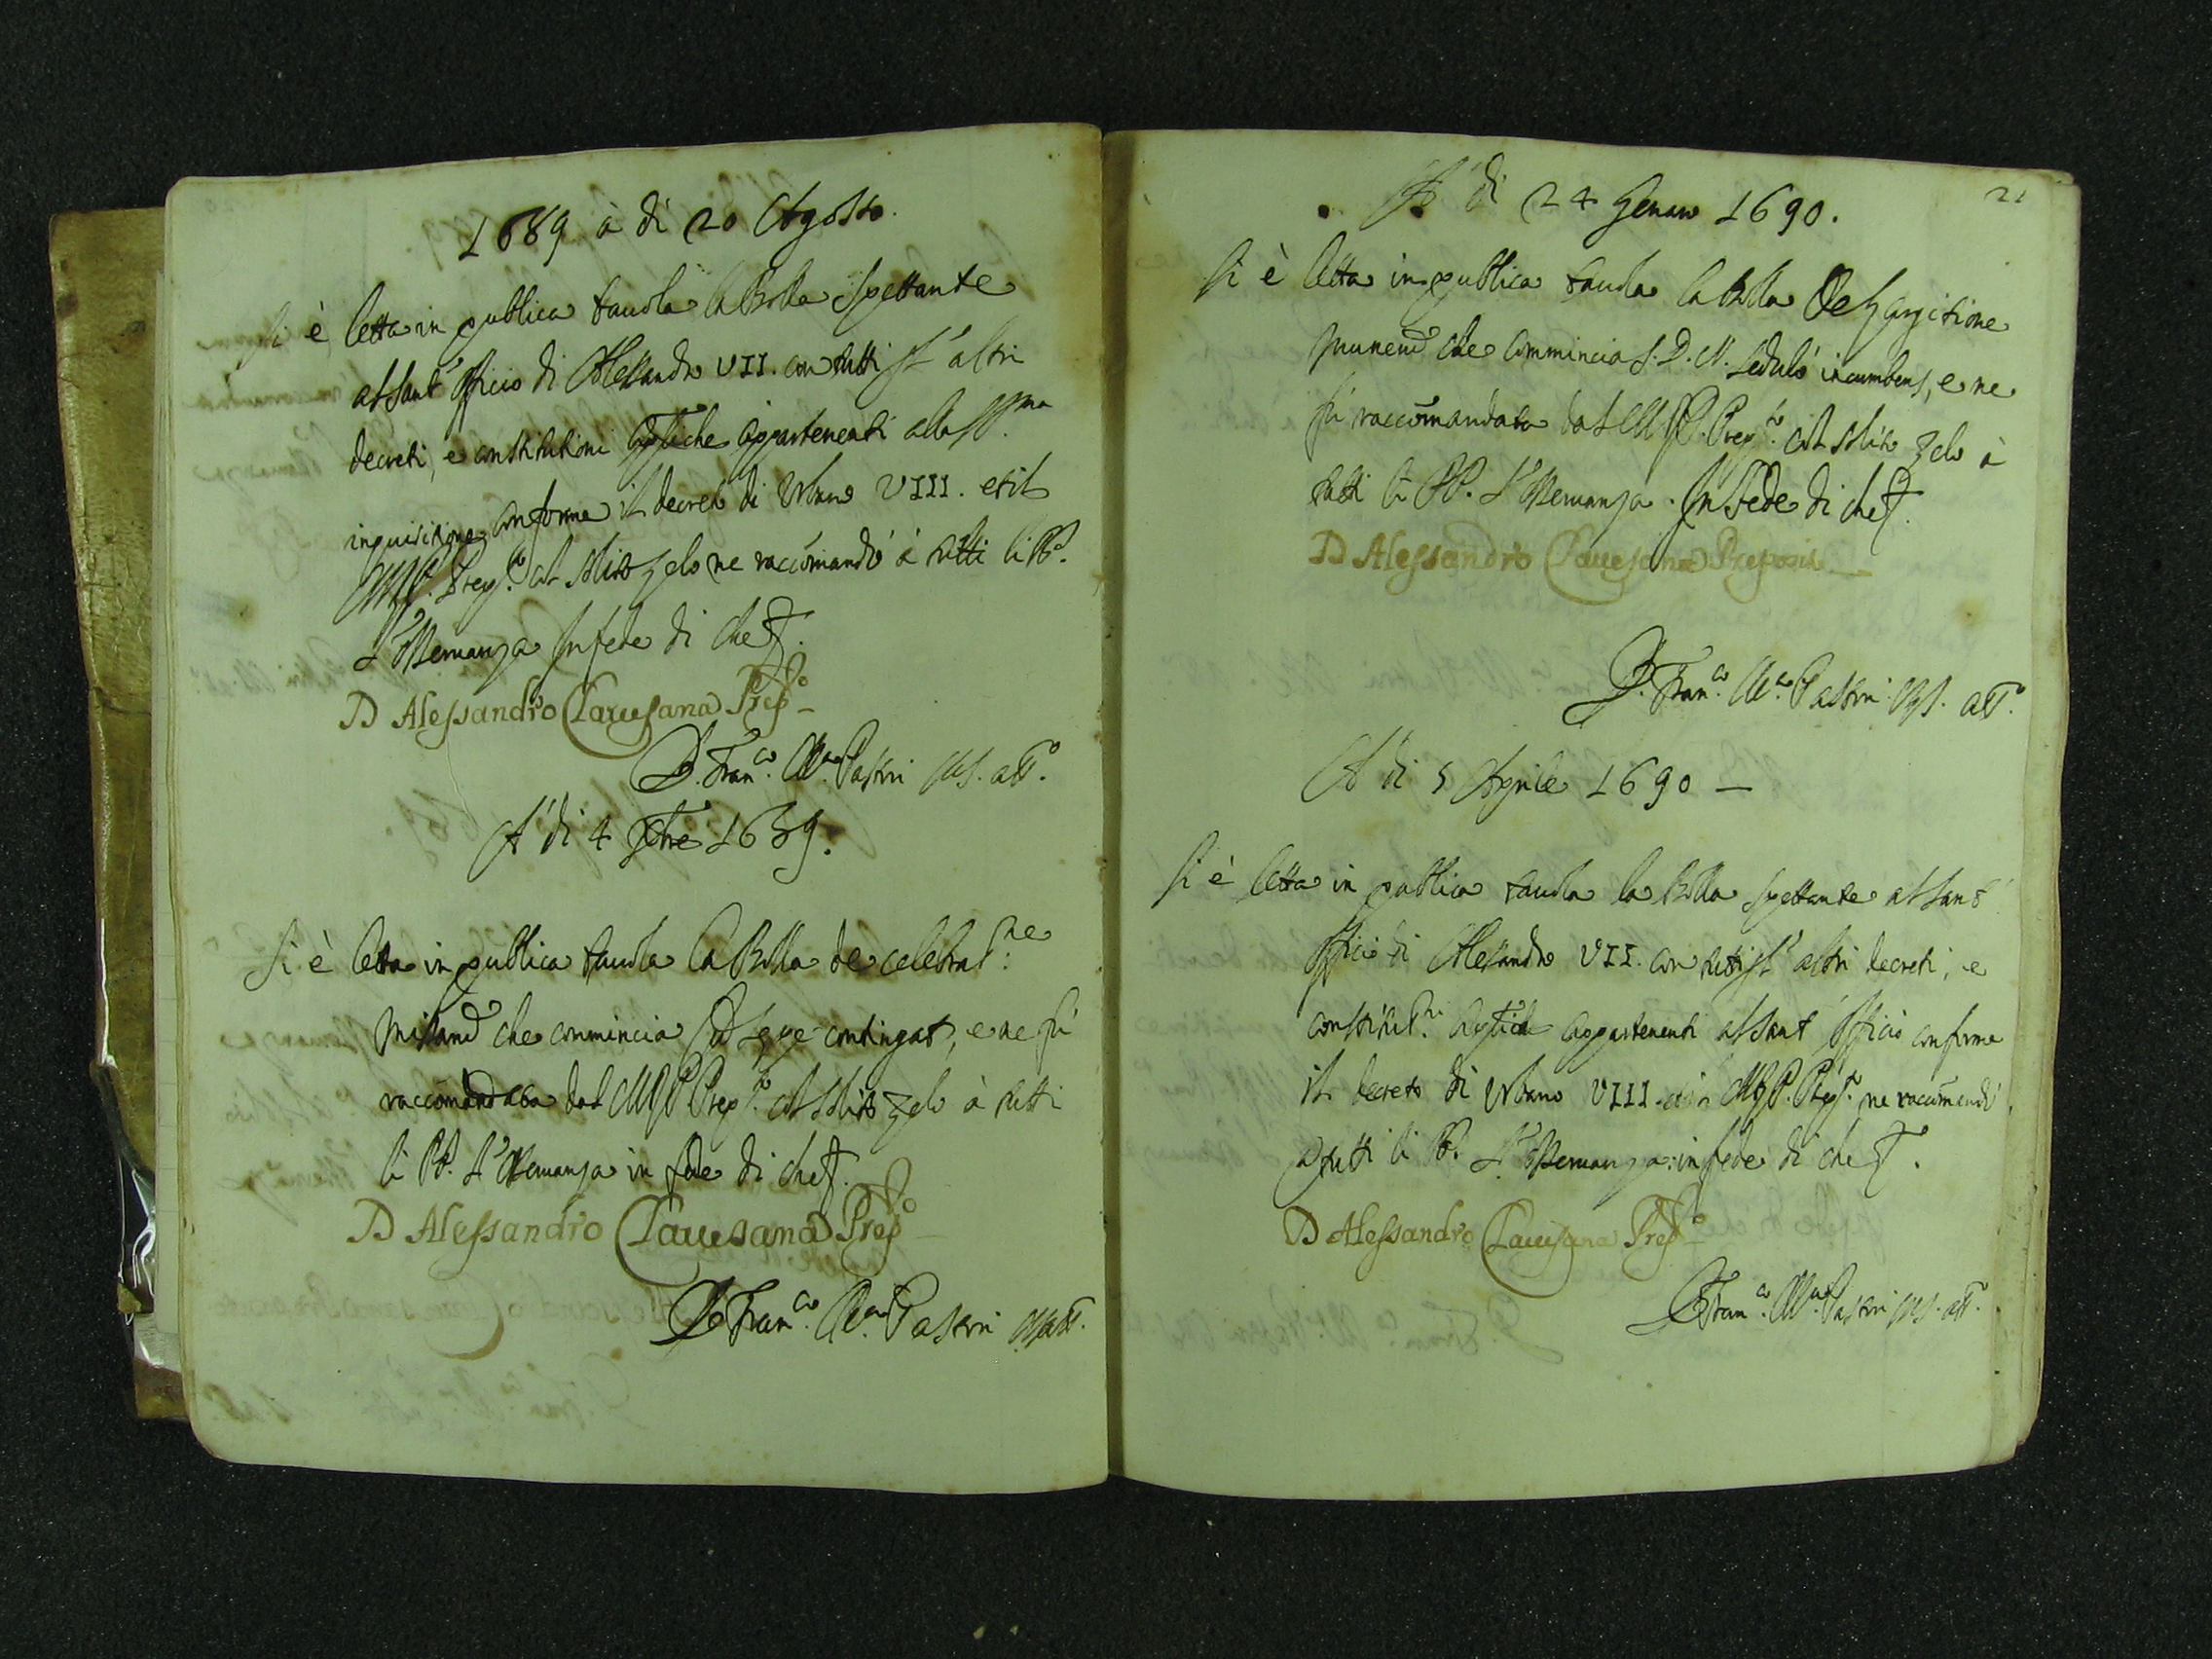 1689 à di 20 Agosto.
Si è letta in publica tauola la Bolla spettante
al Sant' Officio di Alessandro VII. con tutti gl' altri
decreti, e constitutioni Aplīche appartenenti alla SS.ma
inquisitione conforme il decreto di Urbano VIII. et il
M.R.P. Prep.to col solito zelo ne raccōmandò à tutti li PP.
l' osseruanza In fede di che &.
D Alessandro Clauesana Prep.to
D. Fran.co M.a Pastori Vgl. att.o
A' di 4 xbre 1689.
Si è letta in publica tauola la Bolla de celebrat.ne
missarū che commincia Cū sępe contingat, e ne fù
raccōmandata dal M.R.P. Prep.to col solito zelo à tutti
li PP. l' osseruanza in fede di che &.
D Alessandro Clauesana Prep.to
D. Fran.co M.a Pastori att.
21
A' di 24 Genaro 1690.
Si è letta in publica tauola la Bolla De largitione
munerū che commincia S. D. N. sedulò incumbens, e ne
fù raccōmandata dal M.R.P. Prep.to col solito zelo à
tutti li PP. l' osseruanza. In fede di che &.
D Alessandro Clauesana Preposito
D. Fran.co M.a Pastori Vgl. att.o
A' di 5 Aprile 1690 —
Si è letta in publica tauola la Bolla spettante al Sant'
Officio di Alessandro VII. con tutti gl' altri decreti, e
constitut.ni Aplīche appartenenti al Sant' Officio conforme
il decreto di Urbano VIII. M.R.P. Prep.to ne raccōmandò
à tutti li PP. l' osseruanza: in fede di che &.
D Alessandro Clauesana Prep.to
D Fran.co M.a Pastori Vgl. att.